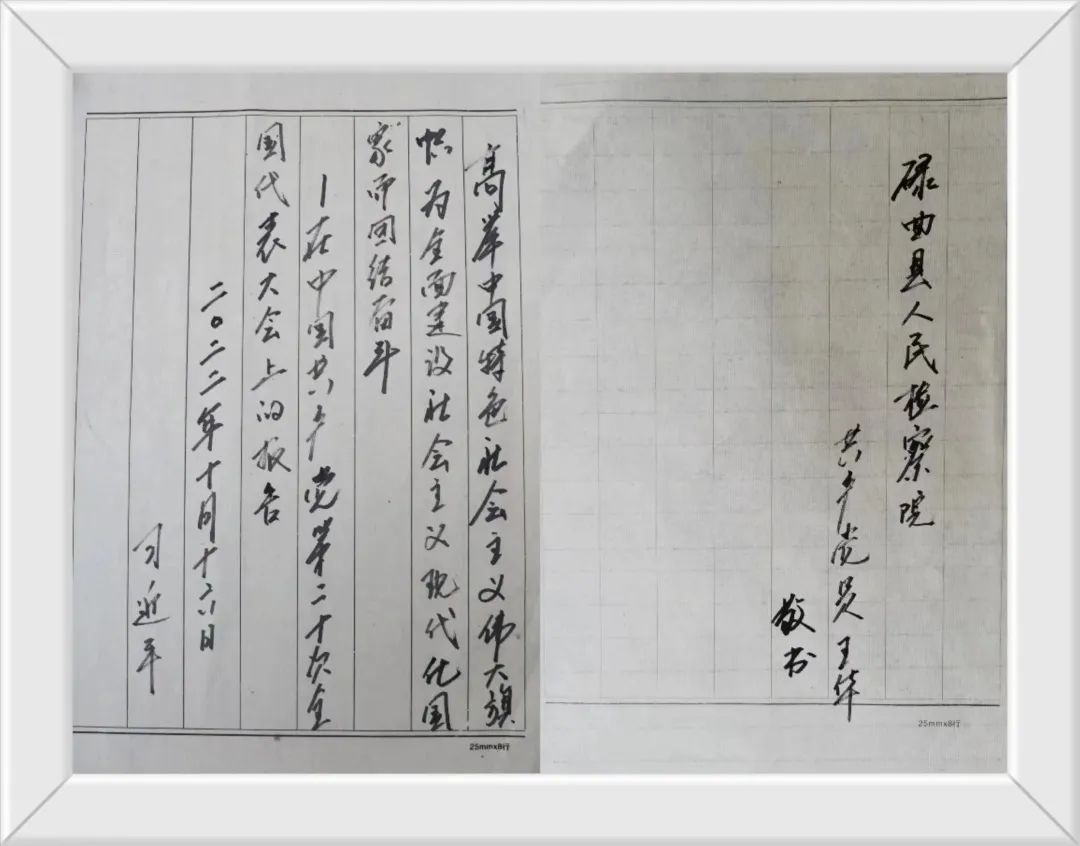 高举中国特色社会主义伟大旗
帜为全面建设社会主义现代化国
家而团结奋斗
—在中国共产党第二十次全
国代表大会上的报告
二〇二二年十月十六日
习近平
25mmx8行
碌曲县人民检察院
共产党员王华
敬书
25mmx8行